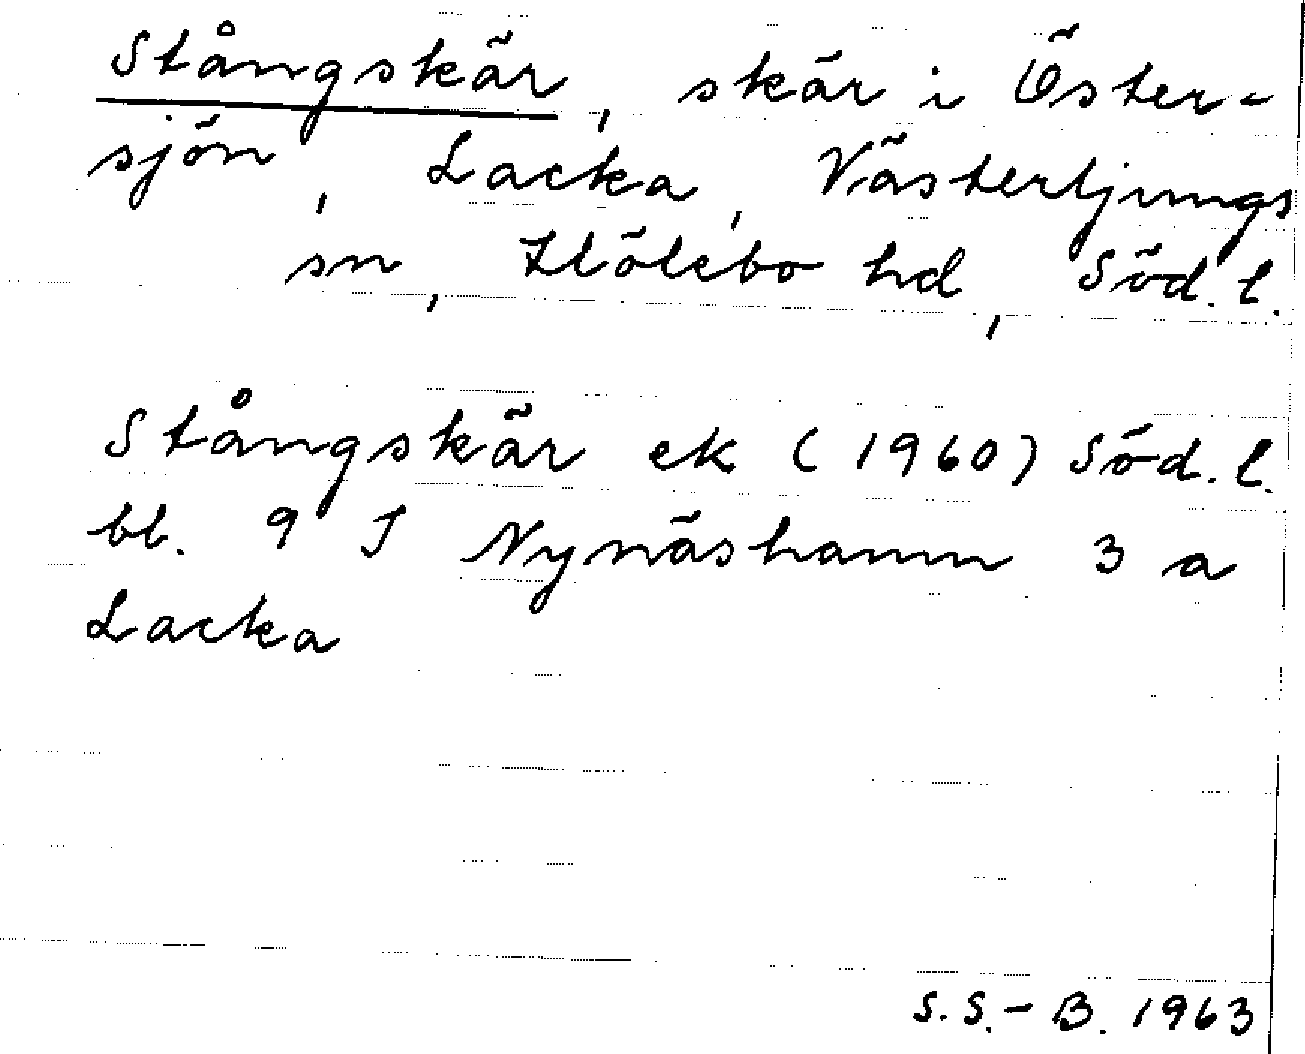 Stångskär, skär i Öster-
sjön, Lacka, Västerljungs
sn, Hölebo hd, Söd. l.
Stångskär ek (1960) Söd. l.
bl. 9 I Nynäshamn 3 a
Lacka
S. S.-B. 1963